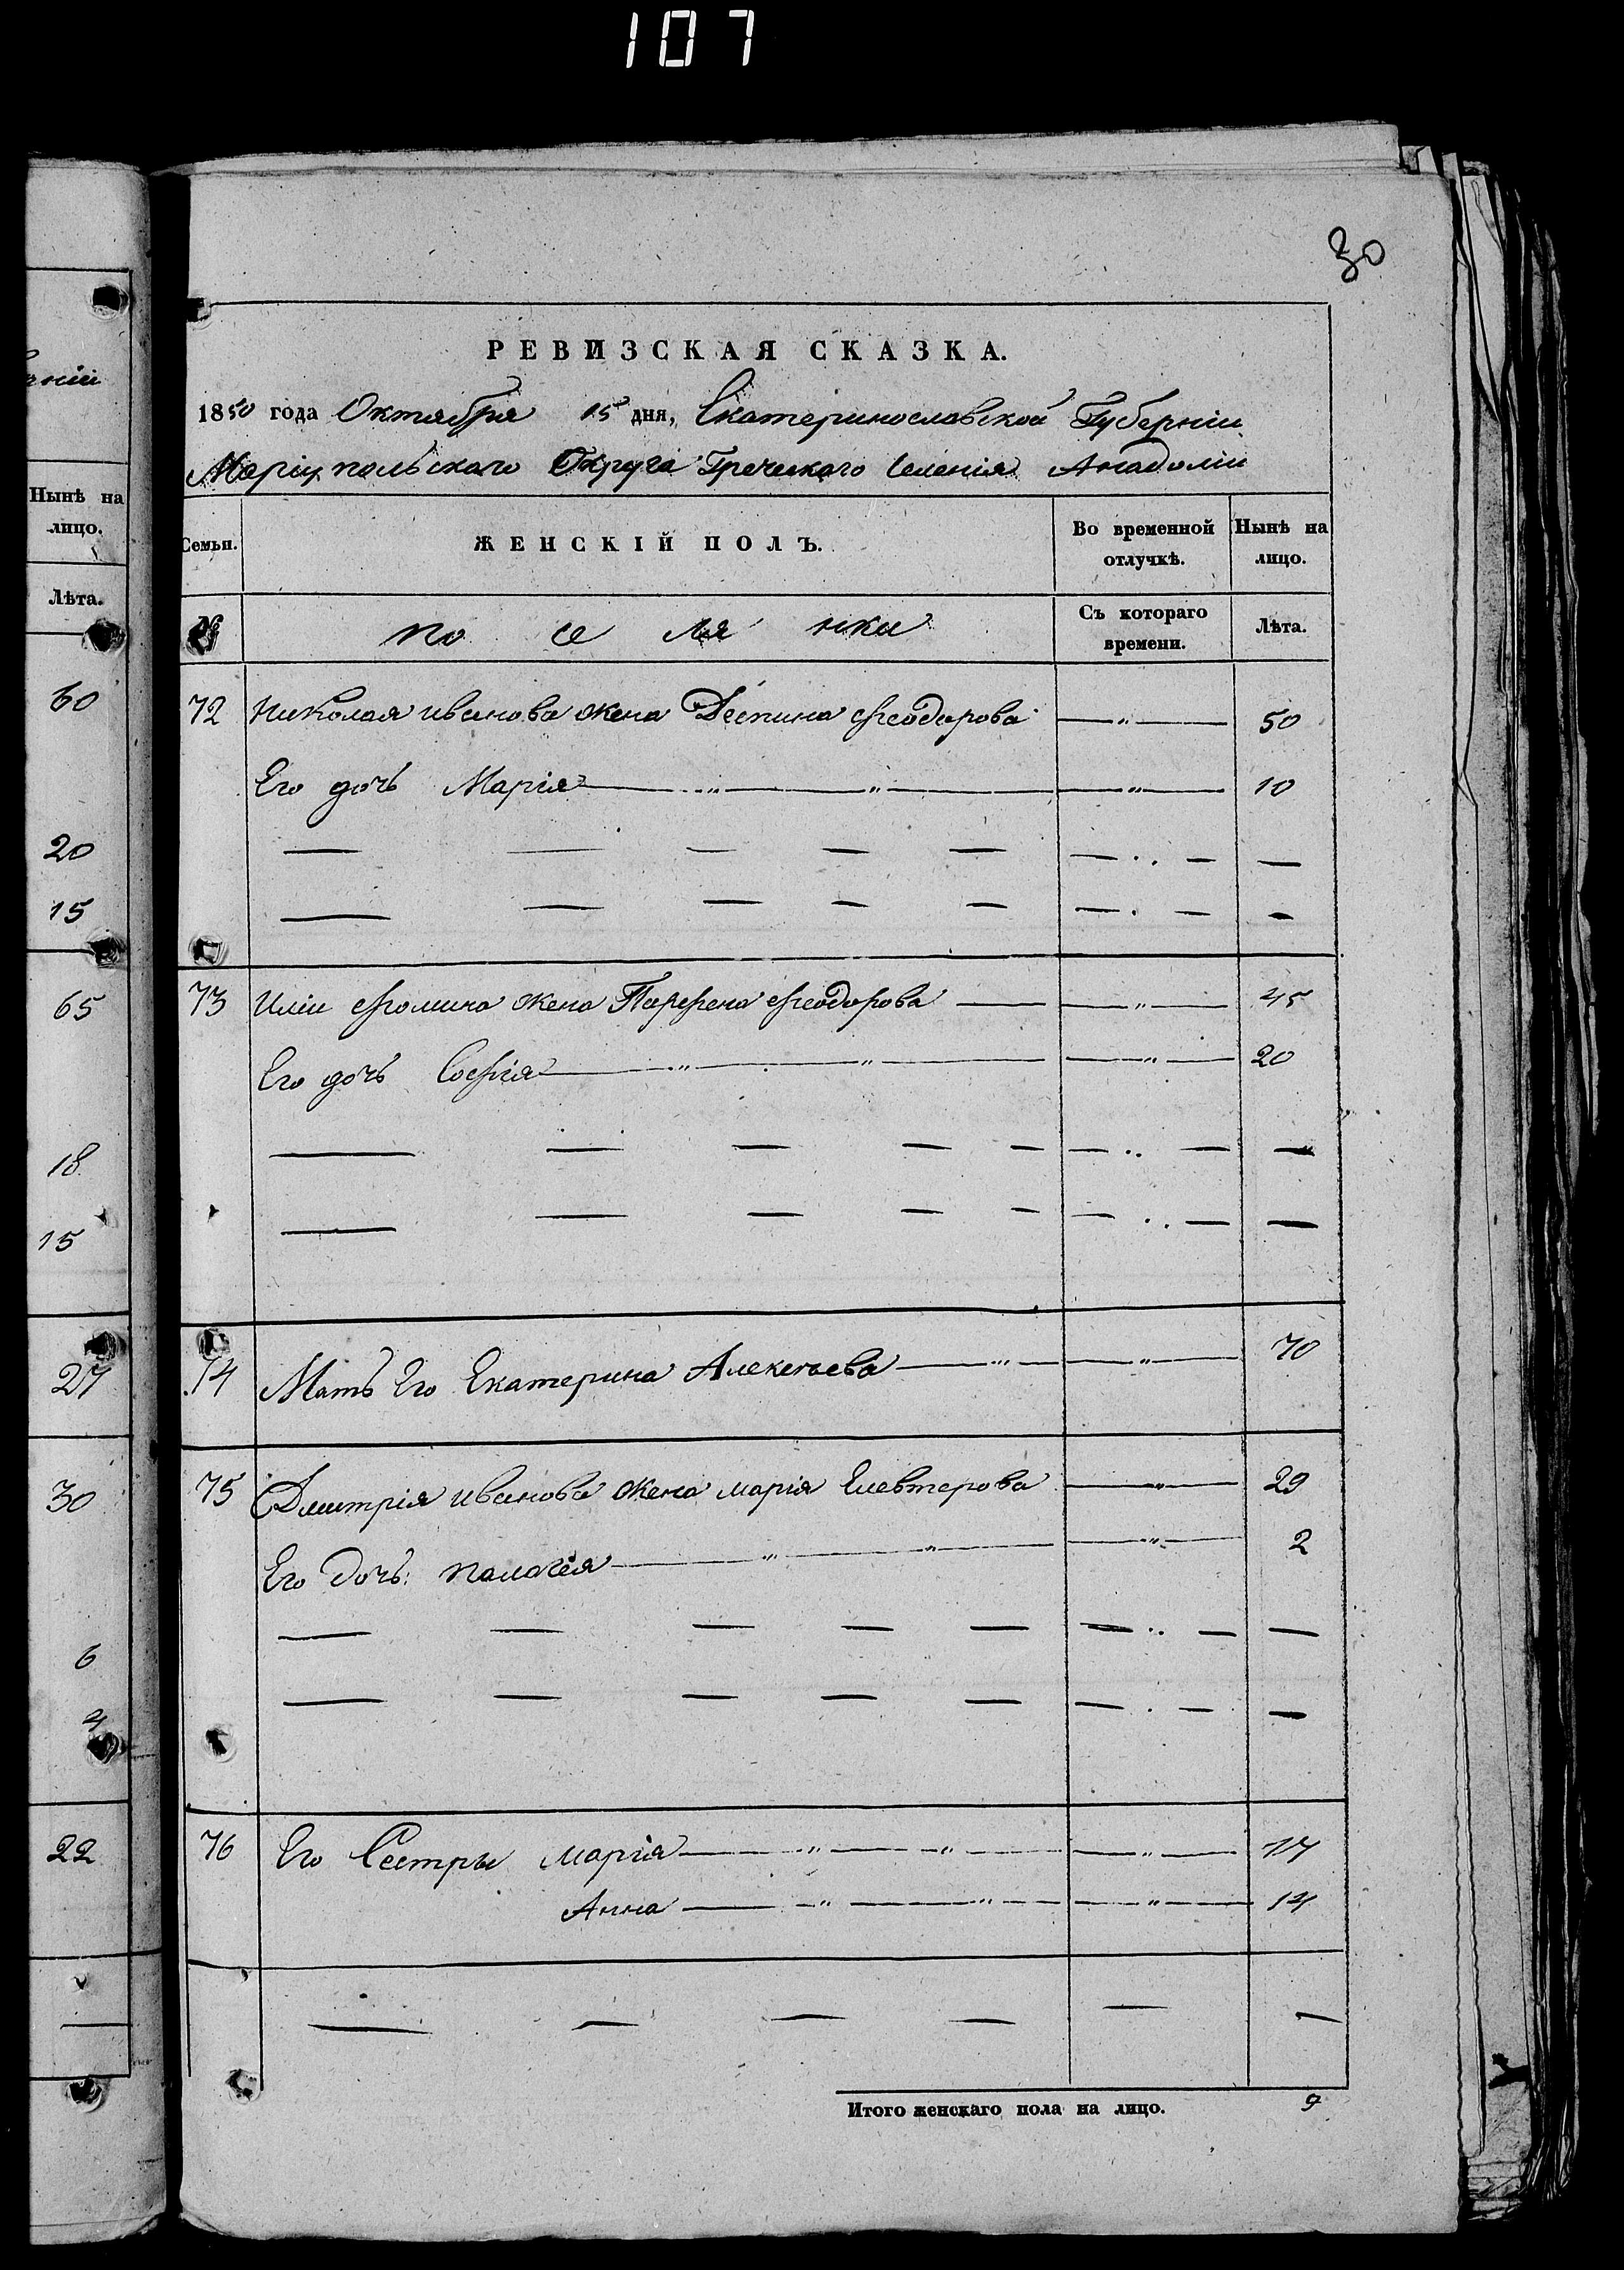 107
30
РЕВИЗСКАЯ СКАЗКА.
1850 года Октября 15 дня, Екатеринославской Губерніи
Маріупольскаго Округа Греческаго Селенія Анадоліи
Семьи. ЖЕНСКІЙ ПОЛЪ. Во временной отлучкѣ. Ныне на лицо.
№ по се ля нки Съ котораго времени. Лѣта.
72 Николая иванова жена Деспина Феодорова — " — 50
Его дочь Марія — " — " — " — 10
73 Иліи Фомина жена Парфена Феодорова — — " — 45
Его дочь Софія — " — " — " — 20
74 Мать Его Екатерина Алексеева — " — " — 70
75 Дмитрія иванова жена марія Елевтерова — " — 29
Его дочь: палагія — " — " — " — 2
76 Его Сестры марія — " — " — " — 17
Анна — " — " — " — 14
Итого женскаго пола на лицо. 9
Нынѣ на
лицо.
Лѣта.
60
20
15
65
18
15
27
30
6
4
22